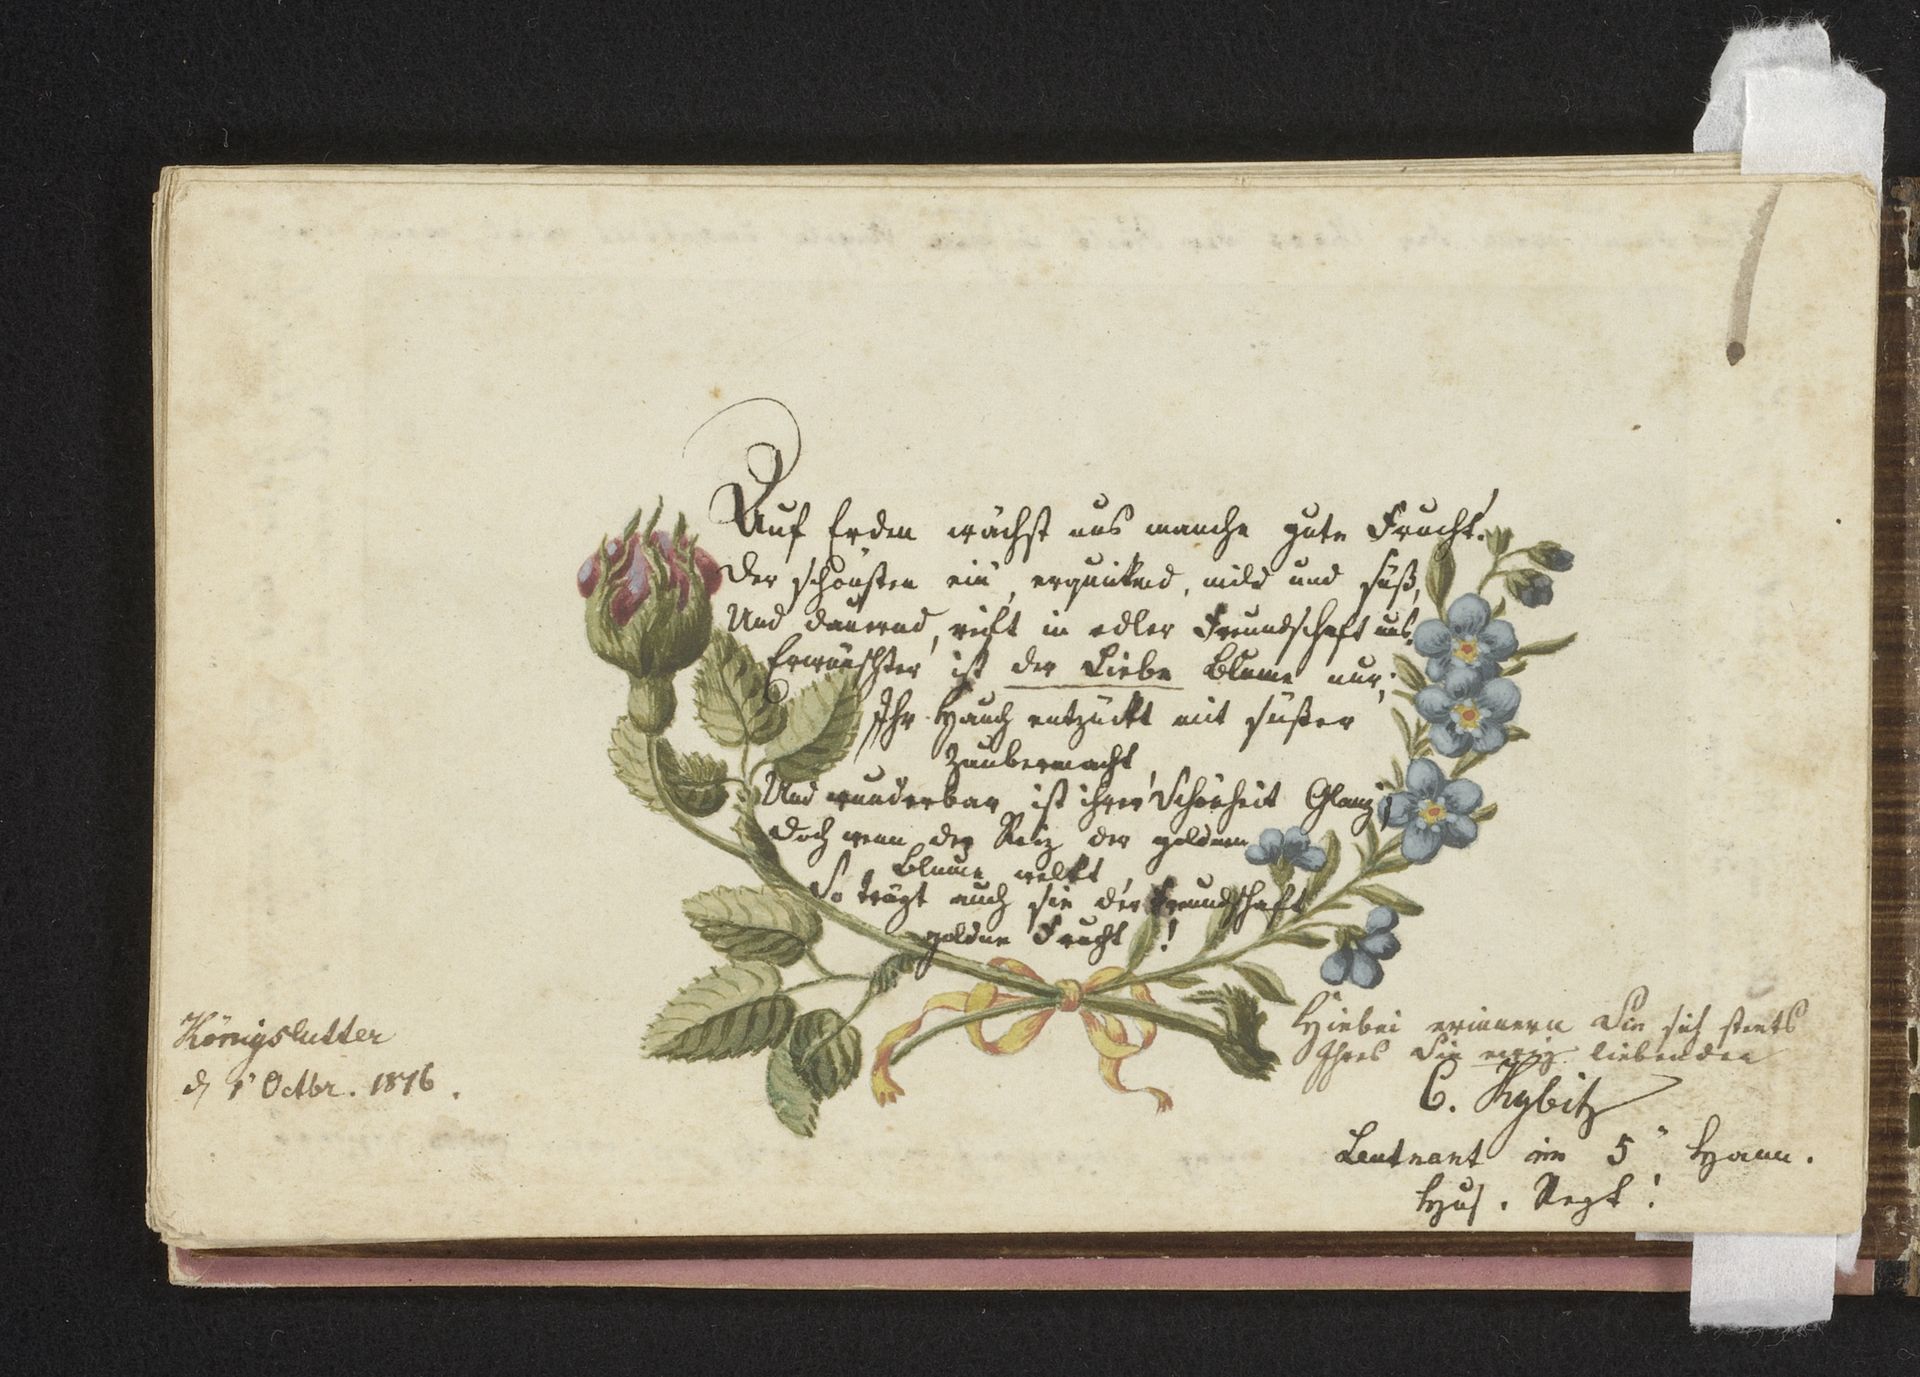 Auf Erden wächst uns manche gute Frucht.
Der schönsten ein, erquickend, mild und süß,
Und dauernd, reift in edler Freundschaft uns.
Erwünschter ist der Liebe Blume nur;
Ihr Hauch entzückt mit süßer
Zaubermacht,
Und wunderbar ist ihrer Schönheit Glanz;
Doch wenn der Reiz der goldnen
Blume welkt,
So trägt auch sie der Freundschaft
goldne Frucht!
Königslutter
d 1t Octbr. 1816.
Hiebei erinnern Sie sich stets
Ihres Sie ewig liebenden
C. Kybitz
Leutnant im 5t Hann.
Hus. Regt!